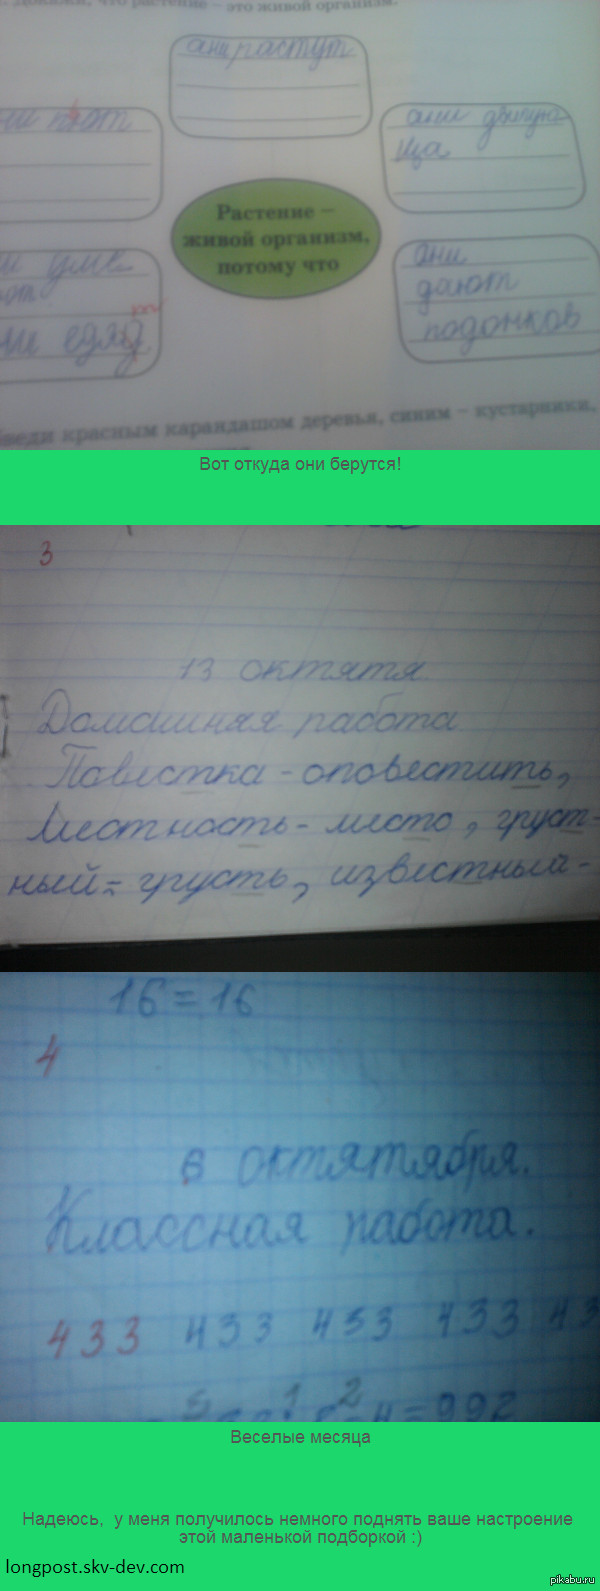 что растение – это живой организм.
ани растут
ани двигую
ща
Растение –
живой организм,
потому что
уме
ют
ани
дают
подонков
едят
красным карандашом деревья, синим – кустарники,
Вот откуда они берутся!
3
13 октятя
Домашняя работа
Повестка - оповестить,
Местность - место, груст-
ный - грусть, известный -
16 = 16
4
6 октятября.
Классная работа.
433 433 433 433 43
4 = 992
Веселые месяца
Надеюсь, у меня получилось немного поднять ваше настроение
этой маленькой подборкой :)
longpost.skv-dev.com
pikabu.ru